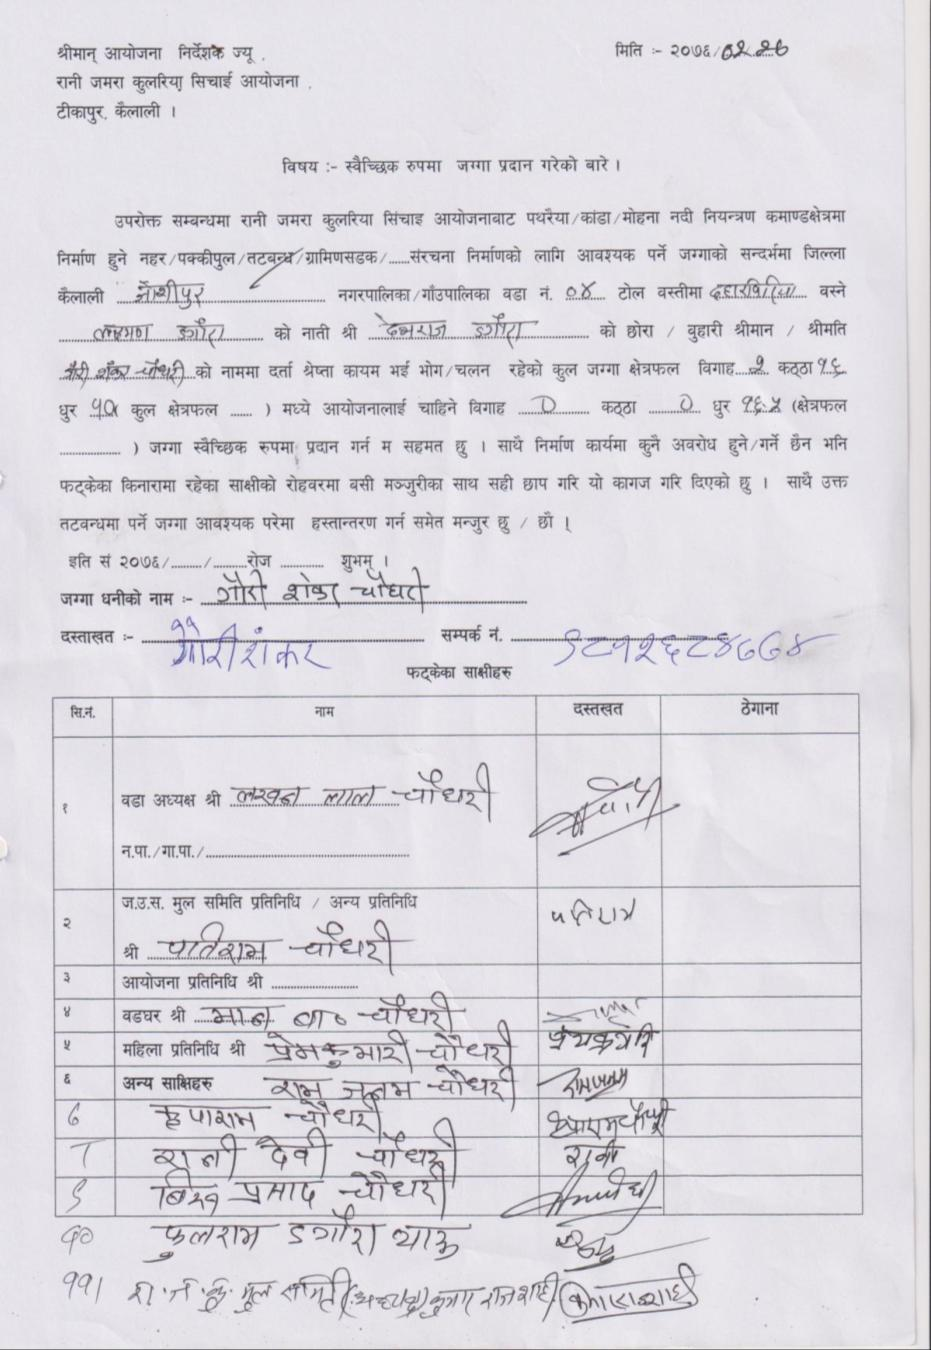 श्रीमान् आयोजना निर्देशक ज्यू,
मिति :- २०७६/०२.२६
रानी जमरा कुलरिया सिचाई आयोजना,
टीकापुर, कैलाली ।
विषय :- स्वैच्छिक रुपमा जग्गा प्रदान गरेको बारे ।
उपरोक्त सम्बन्धमा रानी जमरा कुलरिया सिंचाइ आयोजनाबाट पथरैया/कांडा/मोहना नदी नियन्त्रण कमाण्डक्षेत्रमा
निर्माण हुने नहर/पक्कीपुल/तटबन्ध/ग्रामिणसडक/......संरचना निर्माणको लागि आवश्यक पर्ने जग्गाको सन्दर्भमा जिल्ला
कैलाली जोशीपुर नगरपालिका/गाँउपालिका वडा नं. ०४ टोल वस्तीमा वस्ने
लक्ष्मण डगौरा को नाती श्री देशराज डगौरा को छोरा / बुहारी श्रीमान / श्रीमति
गौरी शंकर चौधरी को नाममा दर्ता श्रेष्ता कायम भई भोग/चलन रहेको कुल जग्गा क्षेत्रफल विगाह २ कठ्ठा १६
धुर कुल क्षेत्रफल ...... ) मध्ये आयोजनालाई चाहिने विगाह ० कठ्ठा ० धुर १६.५ (क्षेत्रफल
.................. ) जग्गा स्वैच्छिक रुपमा प्रदान गर्न म सहमत छु । साथै निर्माण कार्यमा कुनै अवरोध हुने/गर्ने छैन भनि
फट्केका किनारामा रहेका साक्षीको रोहवरमा बसी मञ्जुरीका साथ सही छाप गरि यो कागज गरि दिएको छु । साथै उक्त
तटवन्धमा पर्ने जग्गा आवश्यक परेमा हस्तान्तरण गर्न समेत मन्जुर छु / छौं ।
इति सं २०७६/........./.........रोज ............ शुभम् ।
जग्गा धनीको नाम :- गौरी शंकर चौधरी
दस्ताखत :- गौरीशंकर सम्पर्क नं. ९८१२६८४७७४
फट्केका साक्षीहरु
सि.नं. नाम दस्तखत ठेगाना
१ वडा अध्यक्ष श्री लखन लाल चौधरी
न.पा./गा.पा./..........................
२ ज.उ.स. मुल समिति प्रतिनिधि / अन्य प्रतिनिधि
श्री पातिराम चौधरी पतिराम
३ आयोजना प्रतिनिधि श्री ....................
४ वडघर श्री मान ब०. चौधरी
५ महिला प्रतिनिधि श्री प्रेमकुमारी चौधरी
६ अन्य साक्षिहरु राम जनम चौधरी रामजनम
७ कृपाराम चौधरी कृपारामचौधरी
८ रानी देवी चौधरी रानी
९ प्रसाद चौधरी
१० फुलराम डगौरा थारू
११। रा.ज.कु. मुल समिति (अध्यक्ष) कुमार राज शाही